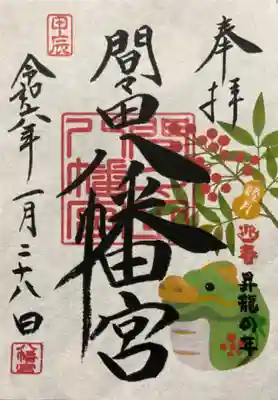 奉拝
睦月
迎春
昇龍の年
間々田八幡宮
甲辰
令和六年一月二十八日